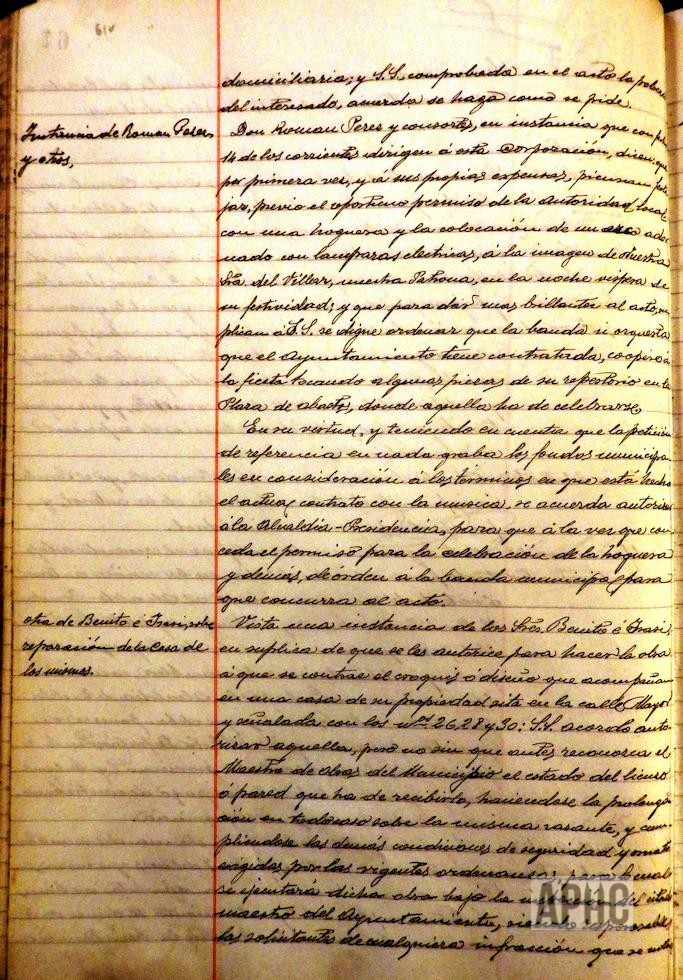 61v
domiciliaria; y S.S. comprobada en el acto la pobreza
del interesado, acuerda se haga como se pide.
Instancia de Roman Perez
y otros,
Don Roman Perez y consortes, en instancia que con fha
14 de los corrientes dirigen á esta Corporación, dicen: que
por primera vez, y á sus propias expensas, piensan feste
jar, previo el oportuno permiso de la Autoridad local
con una hoguera y la colocación de un arco ador
nado con lamparas electricas, á la imagen de Nuestra
Sra. del Villar, nuestra Patrona, en la noche vispera de
su festividad; y que para dar mas brillantez al acto, su
plican á S.S. se digne ordenar que la banda ú orquesta
que el Ayuntamiento tiene contratada, coopere á
la fiesta tocando algunas piezas de su repertorio en la
Plaza de abastos, donde aquella ha de celebrarse.
En su virtud, y teniendo en cuenta que la petición
de referencia en nada graba los fondos municipa
les en consideración á los términos en que está hecho
el actual contrato con la musica, se acuerda autorizar
á la Alcaldía-Presidencia, para que á la vez que con
ceda el permiso para la celebración de la hoguera
y demás, dé órden á la banda municipal para
que concurra al acto.
otra de Benito é Irasi, sobre
reparación de la casa de
los mismos.
Vista una instancia de los Sres. Benito é Irasi,
en suplica de que se les autorice para hacer la obra
á que se contrae el croquis ó diseño que acompañan
en una casa de su propiedad sita en la calle Mayor
y señalada con los nos 26, 28 y 30: S.S. acordó auto
rizar aquella, pero no sin que antes reconozca el
Maestro de obras del Municipio el estado del lienzo
ó pared que ha de recibirlo, haciendose la prolonga
ción en todo caso sobre la misma rasante, y cum
pliendose las demás condiciones de seguridad y ornato
exigidas por las vigentes ordenanzas, para lo cual
se ejecutará dicha obra bajo la del citado
maestro del Ayuntamiento, siendo responsables
los solicitantes de cualquiera infracción que se
APHC